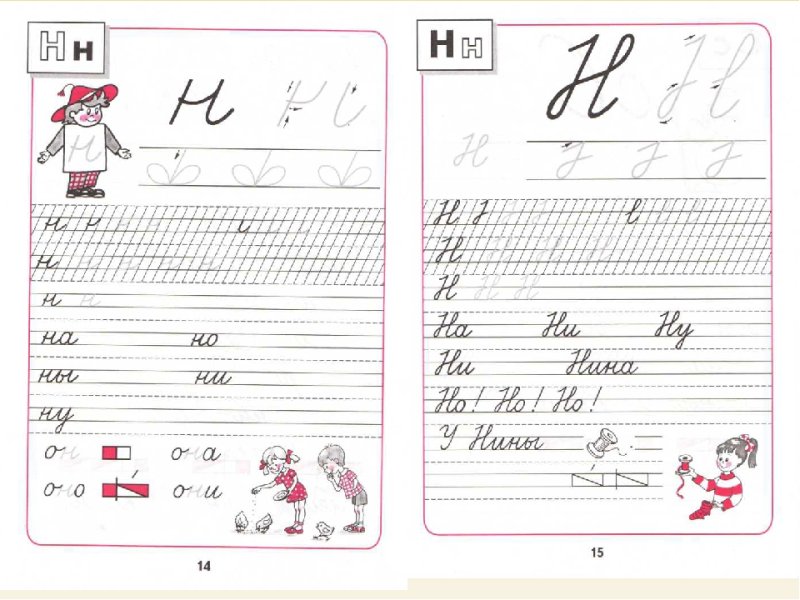 Н н
н н и
н
н н н н и и и
н н н н н н
н н
на но
ны ни
ну
он она
оно они
14
Н н
Н Н
Н
Н Н
Н
Н Н Н
На Ни Ну
Ни Нина
Но! Но! Но!
У Нины
15